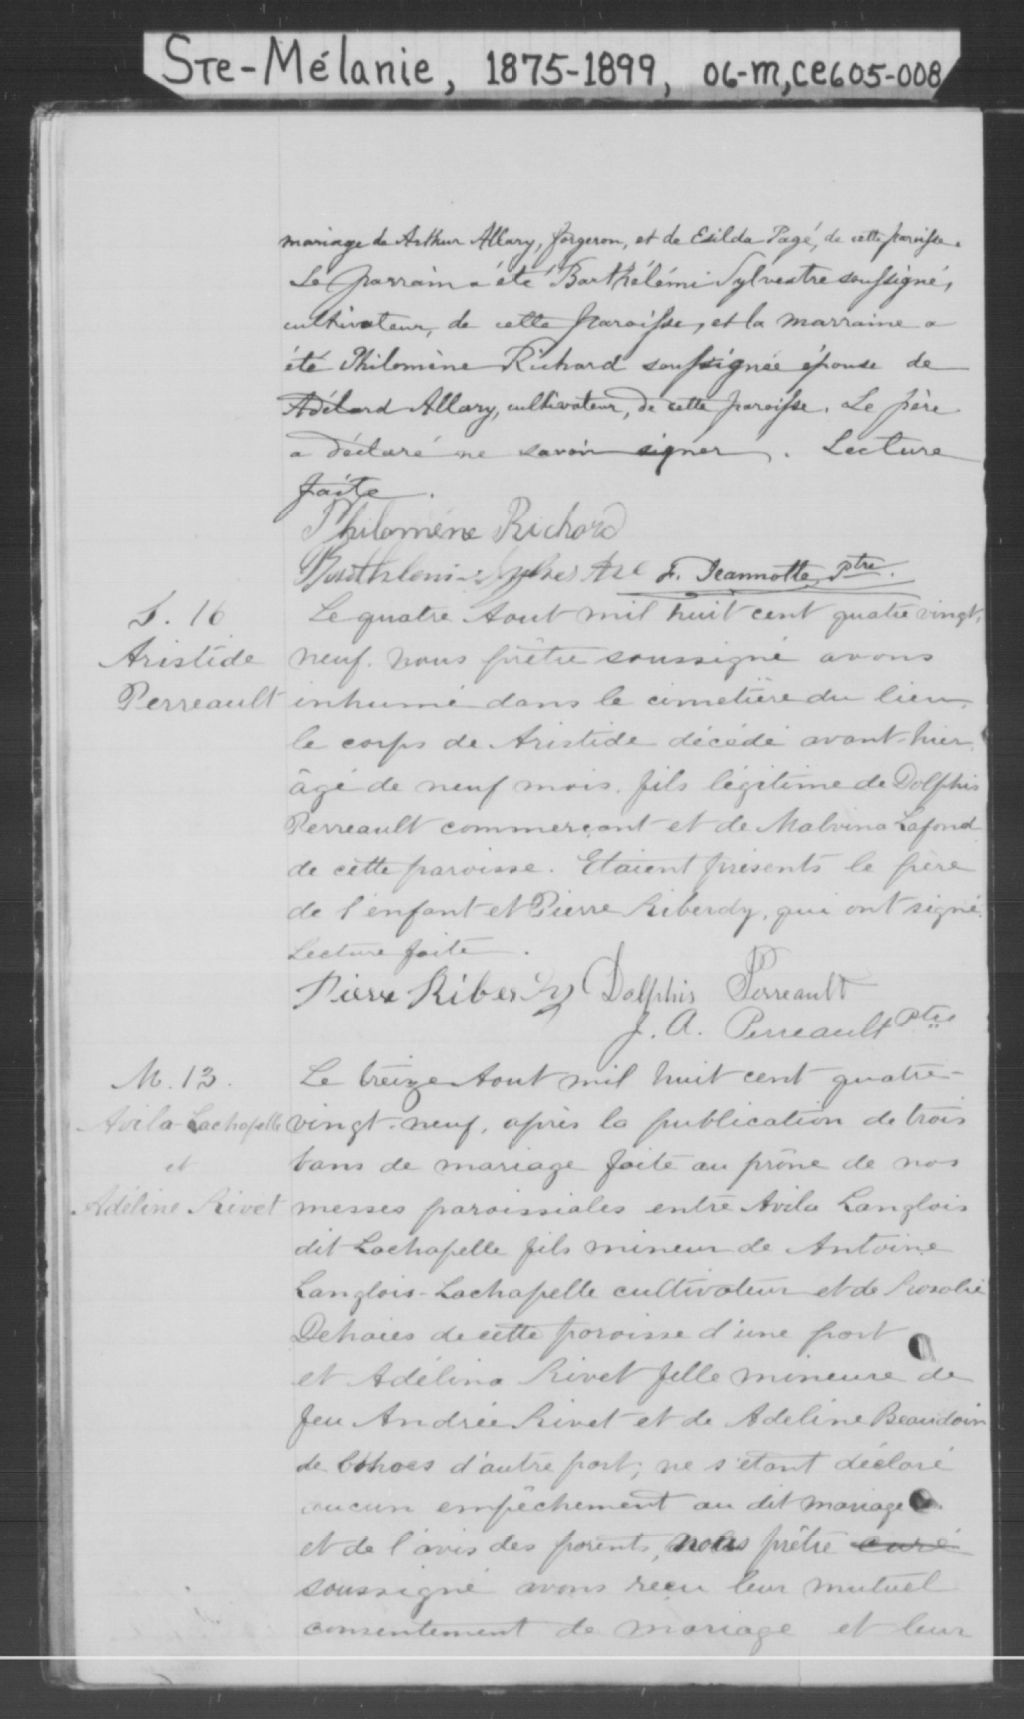 Ste-Mélanie, 1875-1899, 06-M, CE605-008
mariage de Arthur Allary, forgeron, et de Exilda Pagé, de cette paroisse.
Le parrain a été Barthélémi Sylvestre soussigné,
cultivateur, de cette paroisse, et la marraine a
été Philomène Richard soussignée épouse de
Adélard Allary, cultivateur, de cette paroisse. Le père
a déclaré ne savoir signer. Lecture
faite.
Philomène Richard
Barthlemi Sylvestre F. Jeannotte Ptre.
S. 16
Aristide
Perreault
Le quatre Aout mil huit cent quatre vingt,
neuf. nous prêtre soussigné avons
inhumé dans le cimetière du lieu,
le corps de Aristide décédé avant-hier
âgé de neuf mois. fils légitime de Dolphis
Perreault commerçant et de Malvina Lafond
de cette paroisse. Etaient présents le père
de l'enfant et Pierre Riberdy, qui ont signé.
Lecture faite.
Pierre Riberdy Dolphis Perreault
J. A. Perreault Ptre
M. 13.
Avila Lachapelle
et
Adéline Rivet
Le treize Aout mil huit cent quatre-
vingt-neuf, après la publication de trois
bans de mariage faite au prône de nos
messes paroissiales entre Avila Langlois
dit Lachapelle fils mineur de Antoine
Langlois-Lachapelle cultivateur et de Rosalie
Dehaies de cette paroisse d'une part
et Adélina Rivet fille mineure de
feu Andrée Rivet et de Adeline Beaudoin
de Cohoes d'autre part; ne s'étant déclaré
aucun empêchement au dit mariage
et de l'avis des parents, nous prêtre curé
soussigné avons reçu leur mutuel
consentement de mariage et leur